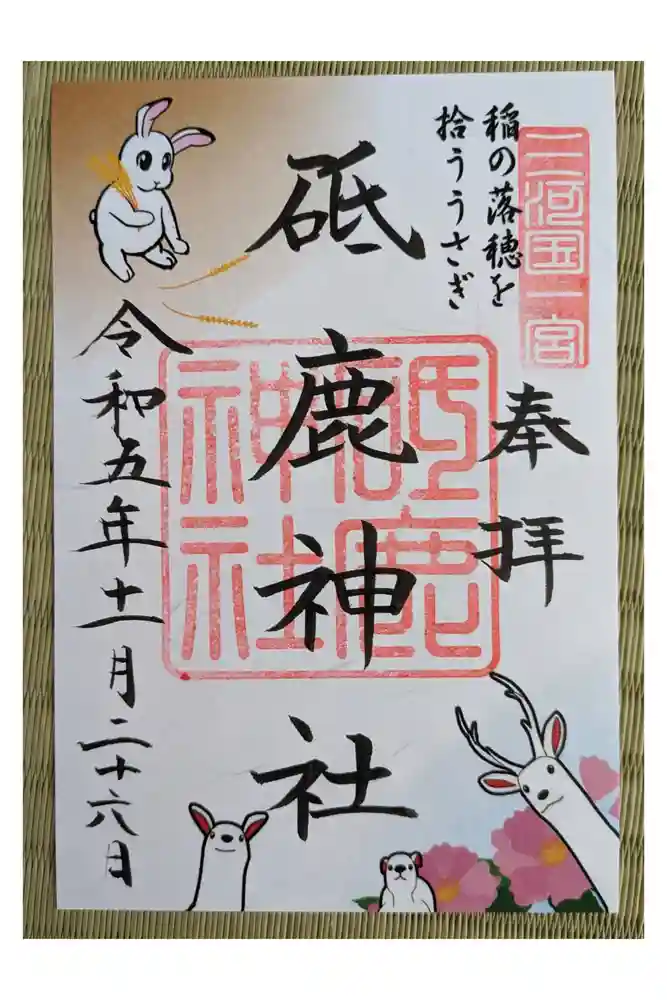 三河国一宮
稲の落穂を
拾ううさぎ
奉拝
砥鹿神社
砥鹿神社
令和五年十一月二十六日